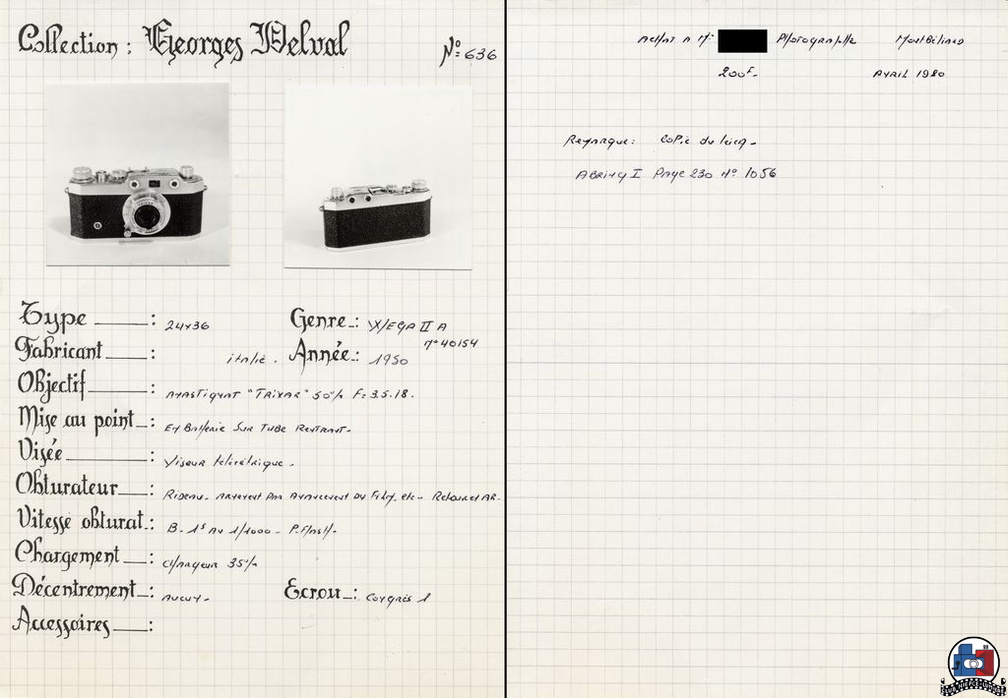 Collection : Georges Delval
N° 636
Type : 24x36
Genre : WEGA II A
n° 40154
Fabricant : italie.
Année : 1950
Objectif : ANASTIGMAT "TRIXAR" 50% F: 3.5.18.
Mise au point : EN Batterie SUR TUBE RENTRANT.
Visée : Viseur télémétrique.
Obturateur : Rideau. ARMEMENT PAR AVANCEMENT DU Film. etc. RETOUR et AR.
Vitesse obturat. : B. 1s AU 1/1000 - P. Flash.
Chargement : Chargeur 35%
Décentrement : AUCUN.
Ecrou : Congrès 1
Accessoires :
ACHAT A Mr PHOTOGRAPHE MontBéliard
200F. AVRIL 1980
Remarque : Copie du leica.
ABRING I Page 230 n° 1056